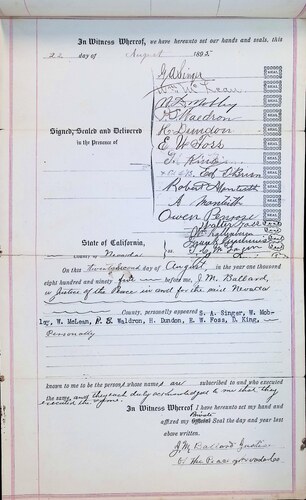 In Witness Whereof, we have hereunto set our hands and seals, this
22 day of August 1895
G A Singer SEAL
W McLean SEAL
W. Mobley SEAL
P S Waldron SEAL
Signed, Sealed and Delivered
in the Presence of
H. Dundon SEAL
E W Foss SEAL
D. King SEAL
Ed O'Brien SEAL
Robert Monteith SEAL
A Monteith SEAL
Owen Penrose SEAL
State of California,
County of Nevada ss.
On this twenty second day of August in the year one thousand
eight hundred and ninety five before me, J. M. Ballard,
a Justice of the Peace in and for the said Nevada
County, personally appeared S. A. Singer, W. Mob-
ley, W. McLean, P. S. Waldron, H. Dundon, E. W. Foss, D. King,
Personally
known to me to be the persons whose names are subscribed to and who executed
the same, and they each duly acknowledged to me that they
executed the same.
In Witness Whereof I have hereunto set my hand and
Private
affixed my Official Seal the day and year last
above written.
J M Ballard Justice
of the Peace